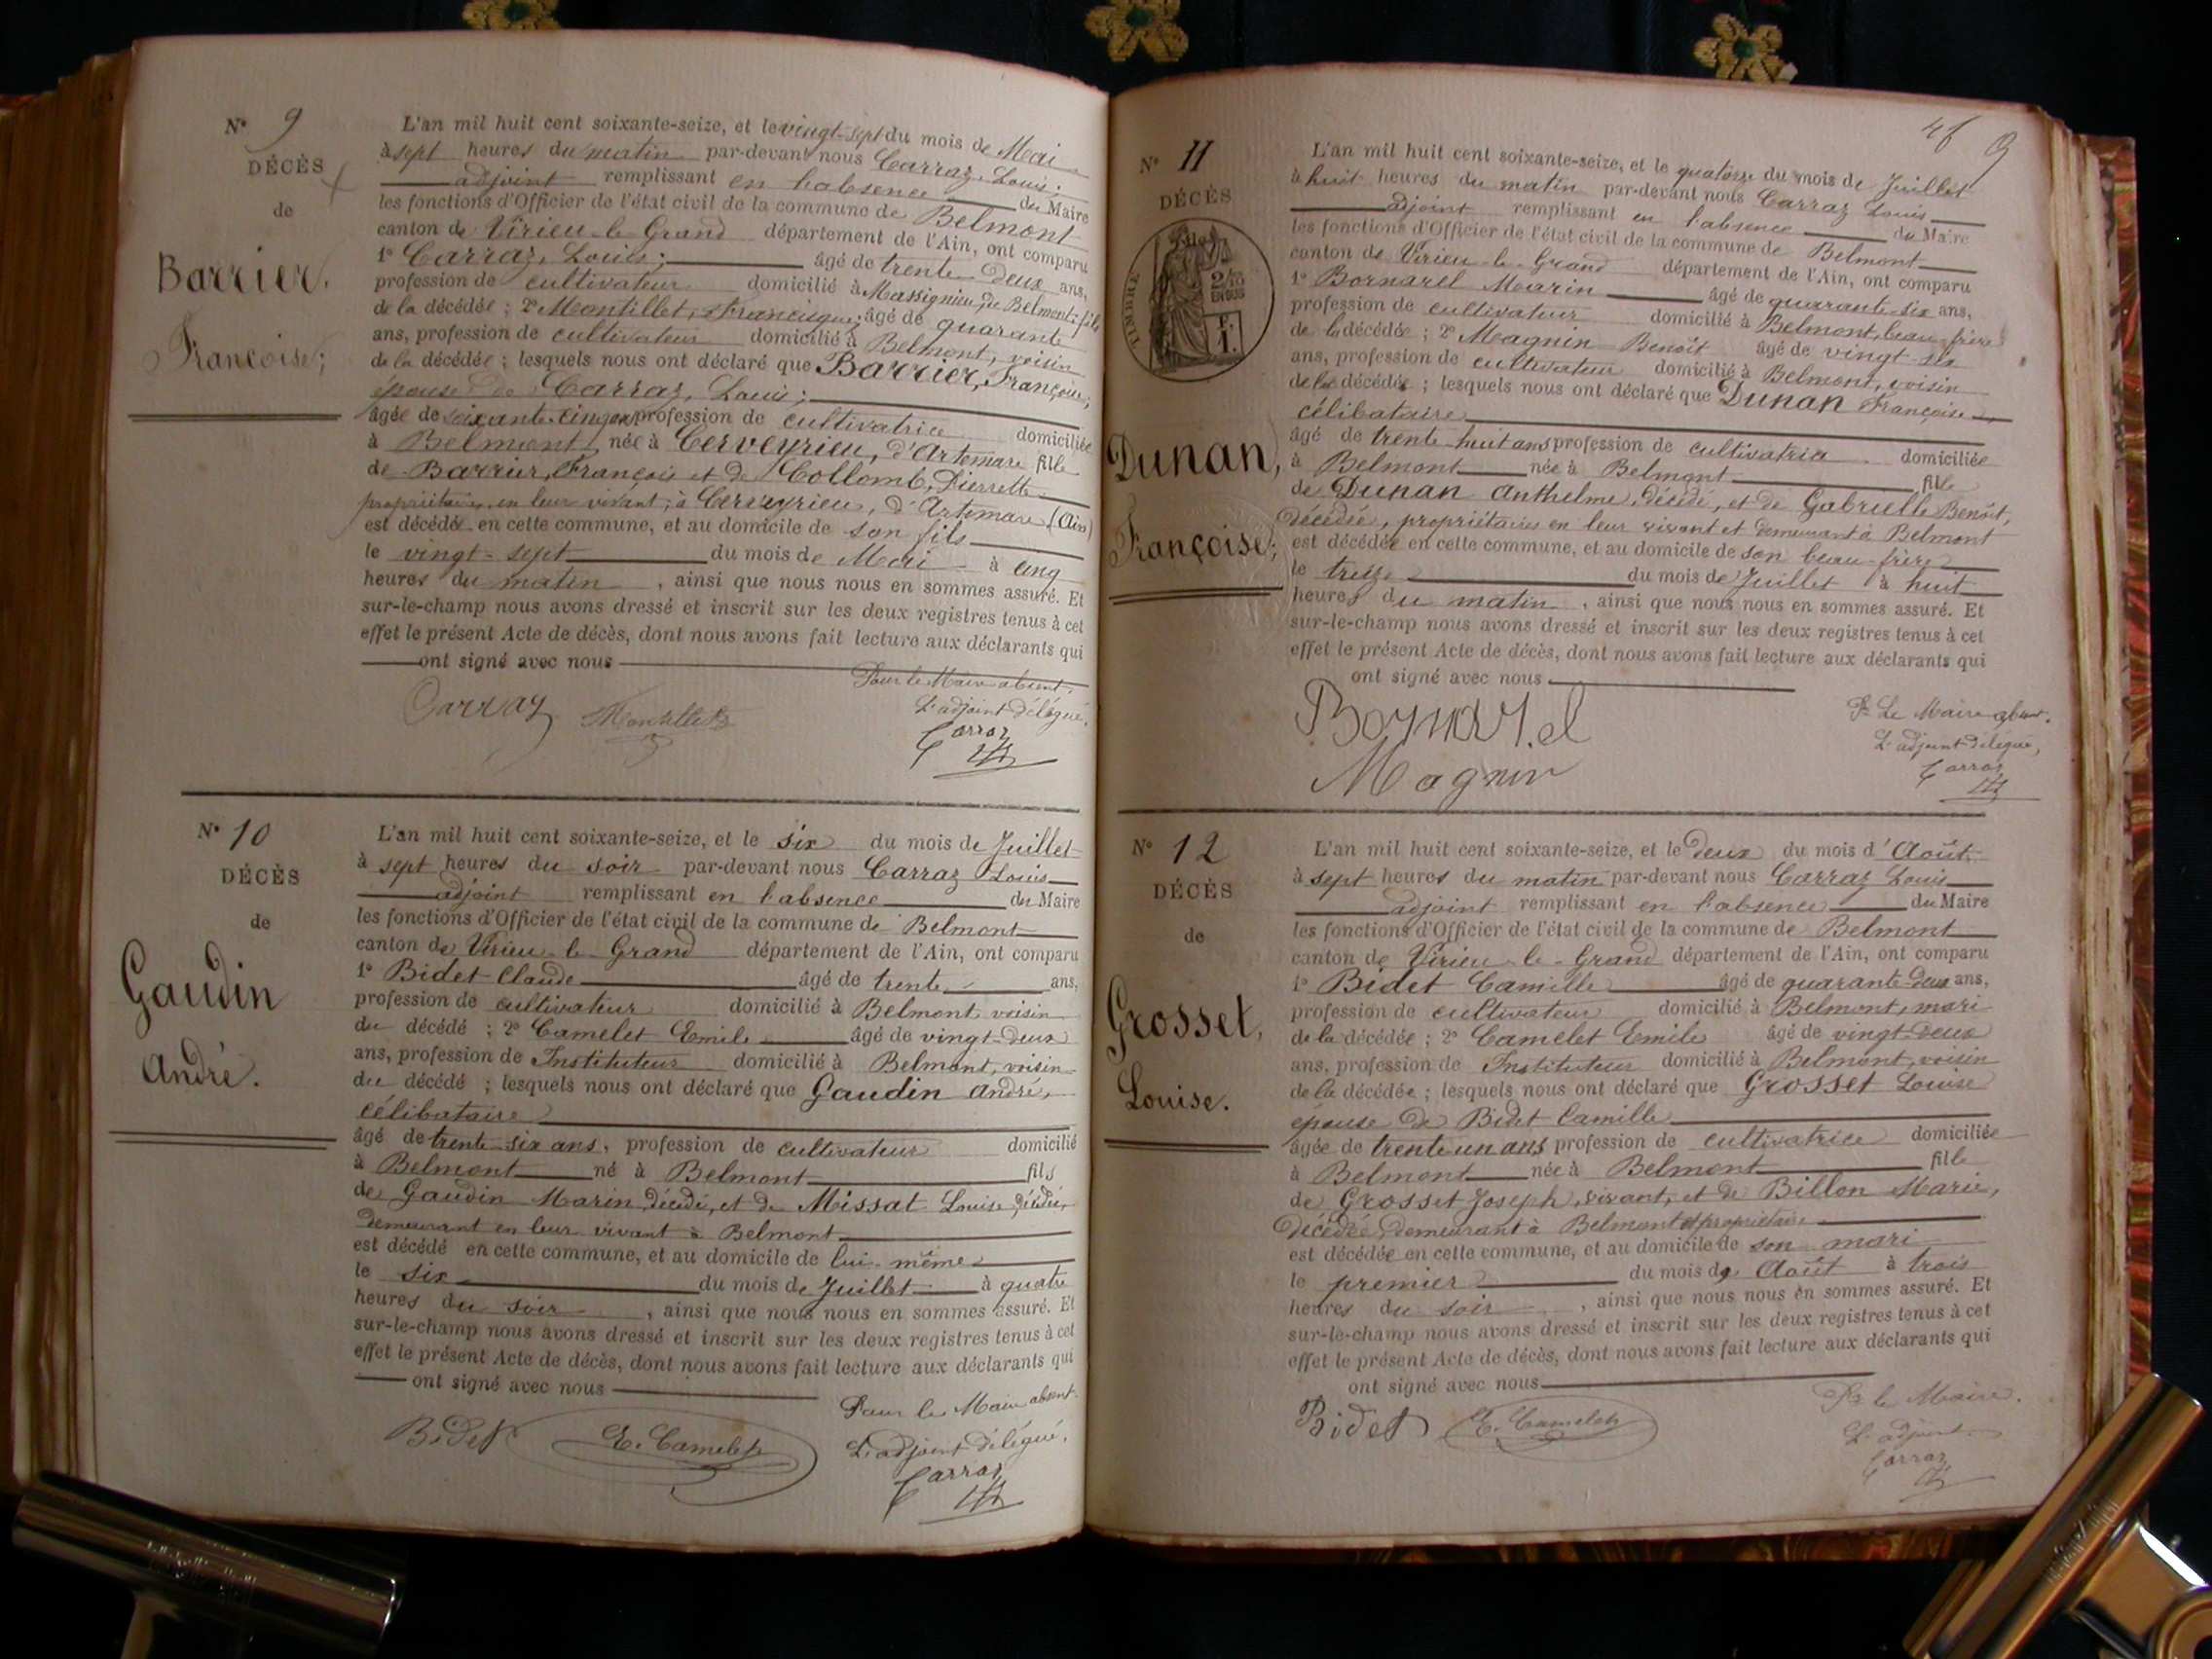 N° 9
DÉCÈS
de
Barrier,
Françoise;
L'an mil huit cent soixante-seize, et le vingt-sept du mois de Mai
à sept heures du matin par-devant nous Carraz, Louis;
adjoint remplissant en l'absence du Maire
les fonctions d'Officier de l'état civil de la commune de Belmont
canton de Virieu-le-Grand département de l'Ain, ont comparu
1° Carraz, Louis; âgé de trente-deux ans,
profession de cultivateur domicilié à Massignieu, de Belmont; fils
de la décédée; 2° Montillet, Francisque; âgé de quarante
ans, profession de cultivateur domicilié à Belmont, voisin
de la décédée; lesquels nous ont déclaré que Barrier, Françoise;
épouse de Carraz, Louis;
âgée de soixante-cinq ans profession de cultivatrice domiciliée
à Belmont née à Cerveyrieu, d'Artemare fille
de Barrier, François et de Collomb, Pierrette
propriétaires, en leur vivant; à Cerveyrieu, d'Artemare (Ain)
est décédée en cette commune, et au domicile de son fils
le vingt-sept du mois de Mai à cinq
heures du matin, ainsi que nous nous en sommes assuré. Et
sur-le-champ nous avons dressé et inscrit sur les deux registres tenus à cet
effet le présent Acte de décès, dont nous avons fait lecture aux déclarants qui
ont signé avec nous
Pour le Maire absent,
L'adjoint délégué,
Carraz Montillet
Carraz
N° 10
DÉCÈS
de
Gaudin
André.
L'an mil huit cent soixante-seize, et le six du mois de Juillet
à sept heures du soir par-devant nous Carraz Louis
adjoint remplissant en l'absence du Maire
les fonctions d'Officier de l'état civil de la commune de Belmont
canton de Virieu-le-Grand département de l'Ain, ont comparu
1° Bidet Claude âgé de trente ans,
profession de cultivateur domicilié à Belmont voisin
du décédé; 2° Camelet Emile âgé de vingt-deux
ans, profession de Instituteur domicilié à Belmont, voisin
du décédé; lesquels nous ont déclaré que Gaudin André,
célibataire
âgé de trente-six ans, profession de cultivateur domicilié
à Belmont né à Belmont fils
de Gaudin Marin, décédé, et de Missat Louise, décédée,
demeurant en leur vivant à Belmont
est décédé en cette commune, et au domicile de lui-même
le six du mois de Juillet à quatre
heures du soir, ainsi que nous nous en sommes assuré. Et
sur-le-champ nous avons dressé et inscrit sur les deux registres tenus à cet
effet le présent Acte de décès, dont nous avons fait lecture aux déclarants qui
ont signé avec nous
Pour le Maire absent.
L'adjoint délégué,
Bidet E. Camelet
Carraz
46 9
N° 11
DÉCÈS
TIMBRE
2/10
EN SUS
Dunan,
Françoise;
L'an mil huit cent soixante-seize, et le quatorze du mois de Juillet
à huit heures du matin par-devant nous Carraz Louis
adjoint remplissant en l'absence du Maire
les fonctions d'Officier de l'état civil de la commune de Belmont
canton de Virieu-le-Grand département de l'Ain, ont comparu
1° Bornarel Marin âgé de quarante-six ans,
profession de cultivateur domicilié à Belmont, beau-frère
de la décédée; 2° Magnin Benoît âgé de vingt-six
ans, profession de cultivateur domicilié à Belmont, voisin
de la décédée; lesquels nous ont déclaré que Dunan Françoise
célibataire
âgé de trente-huit ans profession de cultivatrice domiciliée
à Belmont née à Belmont fille
de Dunan Anthelme, décédé, et de Gabrielle Benoît,
décédée, propriétaires en leur vivant et demeurant à Belmont
est décédée en cette commune, et au domicile de son beau-frère
le treize du mois de Juillet à huit
heures du matin, ainsi que nous nous en sommes assuré. Et
sur-le-champ nous avons dressé et inscrit sur les deux registres tenus à cet
effet le présent Acte de décès, dont nous avons fait lecture aux déclarants qui
ont signé avec nous
Bornarel
Magnin
Pr Le Maire absent.
L'adjoint délégué,
Carraz
N° 12
DÉCÈS
de
Grosset,
Louise.
L'an mil huit cent soixante-seize, et le deux du mois d'Août
à sept heures du matin par-devant nous Carraz Louis
adjoint remplissant en l'absence du Maire
les fonctions d'Officier de l'état civil de la commune de Belmont
canton de Virieu-le-Grand département de l'Ain, ont comparu
1° Bidet Camille âgé de quarante-deux ans,
profession de cultivateur domicilié à Belmont, mari
de la décédée; 2° Camelet Emile âgé de vingt-deux
ans, profession de Instituteur domicilié à Belmont, voisin
de la décédée; lesquels nous ont déclaré que Grosset Louise
épouse de Bidet Camille
âgée de trente un ans profession de cultivatrice domiciliée
à Belmont née à Belmont fille
de Grosset Joseph, vivant, et de Billon Marie,
décédée, demeurant à Belmont et propriétaire
est décédée en cette commune, et au domicile de son mari
le premier du mois de Août à trois
heures du soir, ainsi que nous nous en sommes assuré. Et
sur-le-champ nous avons dressé et inscrit sur les deux registres tenus à cet
effet le présent Acte de décès, dont nous avons fait lecture aux déclarants qui
ont signé avec nous
Bidet E. Camelet
Pr le Maire.
L'adjoint
Carraz